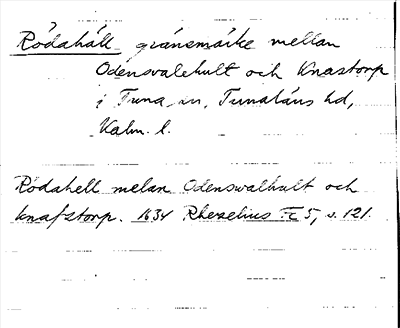 Rödahäll gränsmärke mellan
Odensvalehult och Knastorp
i Tuna sn, Tunaläns hd,
Kalm. l.
Rödahell melan Odenswalhult och
knafstorp. 1634 Rhezelius Fc 5, s. 121.